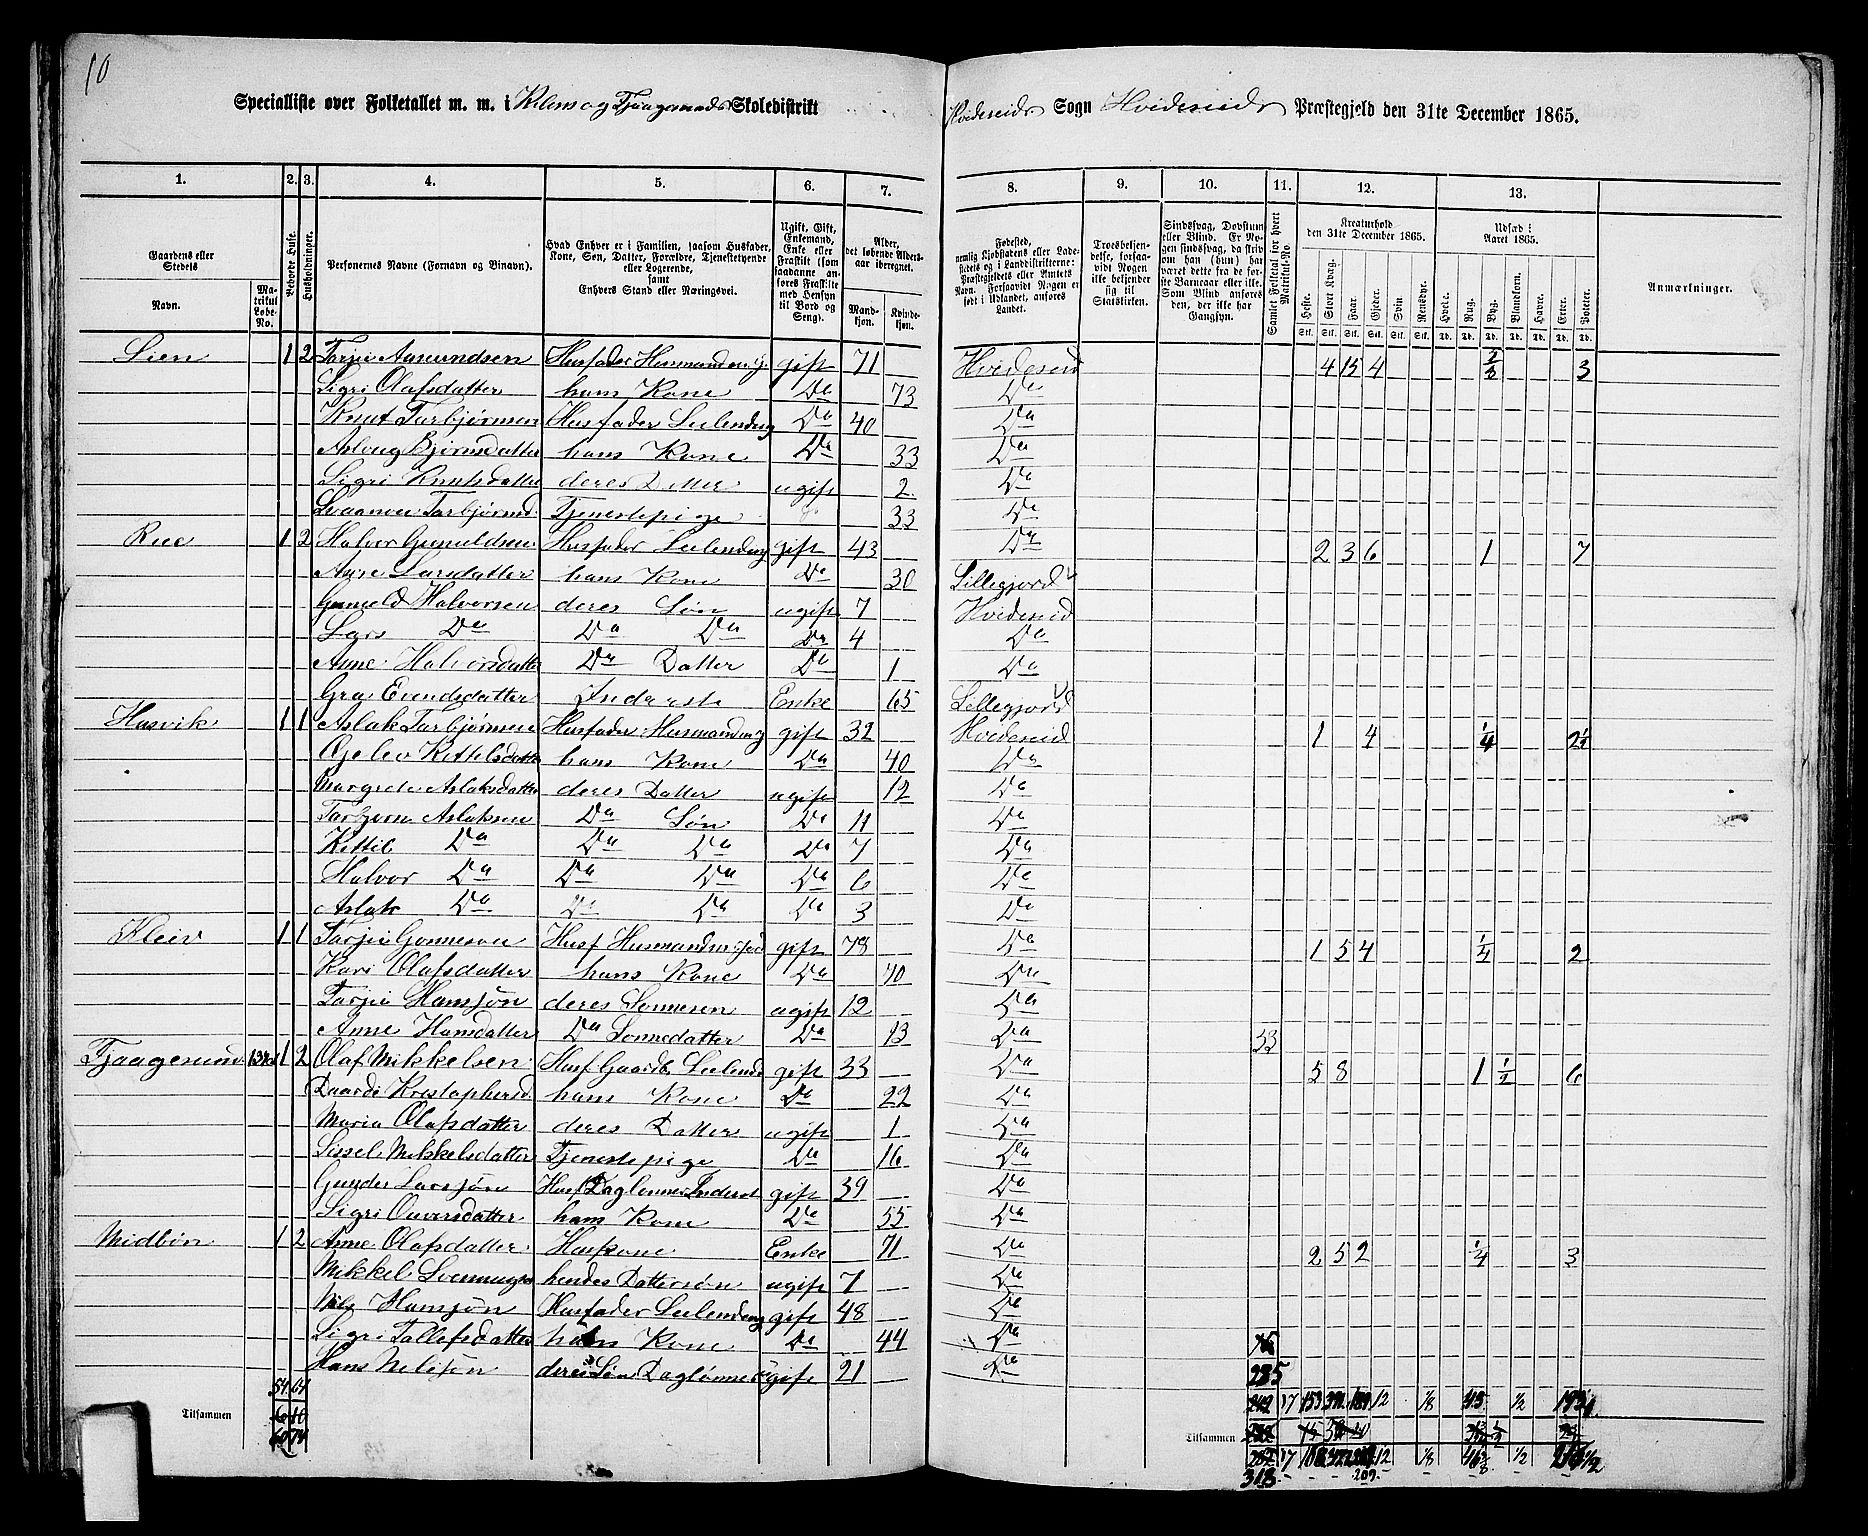 10
Specialliste over Folketallet m. m. i Klens og Tjaagesunds Skoledistrikt Hvideseids Sogn Hvideseids Præstegjeld den 31te December 1865.
1. 2. 3. 4. 5. 6. 7. 8. 9. 10. 11. 12. 13.
Gaardens eller Stedets
Navn. Matrikul Løbe-No.
Beboede Huse.
Husholdninger.
Personernes Navne (Fornavn og Binavn).
Hvad Enhver er i Familien, saasom Husfader, Kone, Søn, Datter, Forældre, Tjenestetyende eller Logerende, samt Enhvers Stand eller Næringsvei.
Ugift, Gift, Enkemand, Enke eller Fraskilt (saadanne anføres Fraskilte med Hensyn til Bord og Seng).
Alder, det løbende Aldersaar iberegnet.
Mandkjøn. Kvindekjøn.
Fødested, nemlig Kjøbstadens eller Ladestedets og i Landdistrikterne: Præstegjeldets eller Amtets Navn. Forsaavidt Nogen er født i Udlandet, anføres Landet.
Troesbekjendelse, forsaavidt Nogen ikke bekjender sig til Statskirken.
Sindssvag, Døvstum eller Blind. Er Nogen sindssvag, da skriv om han (hun) har været dette fra de første Barneaar eller ikke. Som Blind anføres den, der ikke har Gangsyn.
Samlet Folketal for hvert Matrikul-No
Kreaturhold den 31te December 1865.
Heste. Stort Kvæg. Faar. Gjeder. Svin. Rensdyr.
Udsæd i Aaret 1865.
Hvede. Rug. Byg. Blandkorn. Havre. Erter. Poteter.
Anmærkninger.
Lien 1 2 Tarjei Aamundsen Husfader Husmand m. j. gift 71 Hvideseid 4 15 4 3
Sigri Olafsdatter hans Kone Do 73 Do
Knut Tarbjørnsen Husfader Leilending Do 40 Do
Aslaug Bjørnsdatter hans Kone Do 33 Do
Sigri Knutsdatter deres Datter ugift 2 Do
Tarbjørnsd. Tjenestepige 33 Do
Rue 1 2 Halvor Gunuldsen Husfader Leilending gift 43 Do 2 3 6 1 7
Anne Larsdatter hans Kone Do 30 Sillegjord
Gunuld Halvorsen deres Søn ugift 7 Hvideseid
Lars Do Do Do Do 4 Do
Anne Halvorsdatter Do Datter Do 1 Do
Gro Evendsdatter Inderst Enke 65 Sillegjord
Husvik 1 1 Aslak Tarbjørnsen Husfader Husmand m. j. gift 32 Hvideseid 1 4 1/4 2 1/2
Gjelev Kettelsdatter hans Kone Do 40 Do
Margrete Aslaksdatter deres Datter ugift 12 Do
Tarbjørn Aslaksen Do Søn Do 11 Do
Kettil Do Do Do Do 7 Do
Halvor Do Do Do Do 6 Do
Aslak Do Do Do Do 3 Do
Kleiv 1 1 Tarjei Gonnesen Husf Husmand m jord gift 78 Do 1 5 4 1/4 2
Kari Olafsdatter hans Kone Do 70 Do
Tarjei Hansjøn deres Sønnesøn ugift 12 Do
Anne Hansdatter Do Sønnedatter Do 13 Do 33
Tjaagesund 1 2 Olaf Mikkelsen Husf Gaardb Leilend gift 33 Do 5 8 1 1/2 6
Daarde Kristophersd. hans Kone Do 22 Do
Maria Olafsdatter deres Datter ugift 1 Do
Sissel Mikkelsdatter Tjenestepige Do 16 Do
Gunder Larsjøn Husf Daglønner Inderst gift 39 Do
Sigri Ouversdatter hans Kone Do 55 Do
Midbøn 1 2 Anne Olafsdatter Huskone Enke 71 Do 2 5 2 1/4 3
Mikkel hendes Dattersøn ugift 7 Do
Nils Hansjøn Husfader Leilending gift 48 Do
Sigri Tallefsdatter hans Kone Do 44 Do
Hans Nilsjøn deres Søn Daglønner ugift 21 Do 285
54 64
Tilsammen 6 10
60 74
Tilsammen
318 209